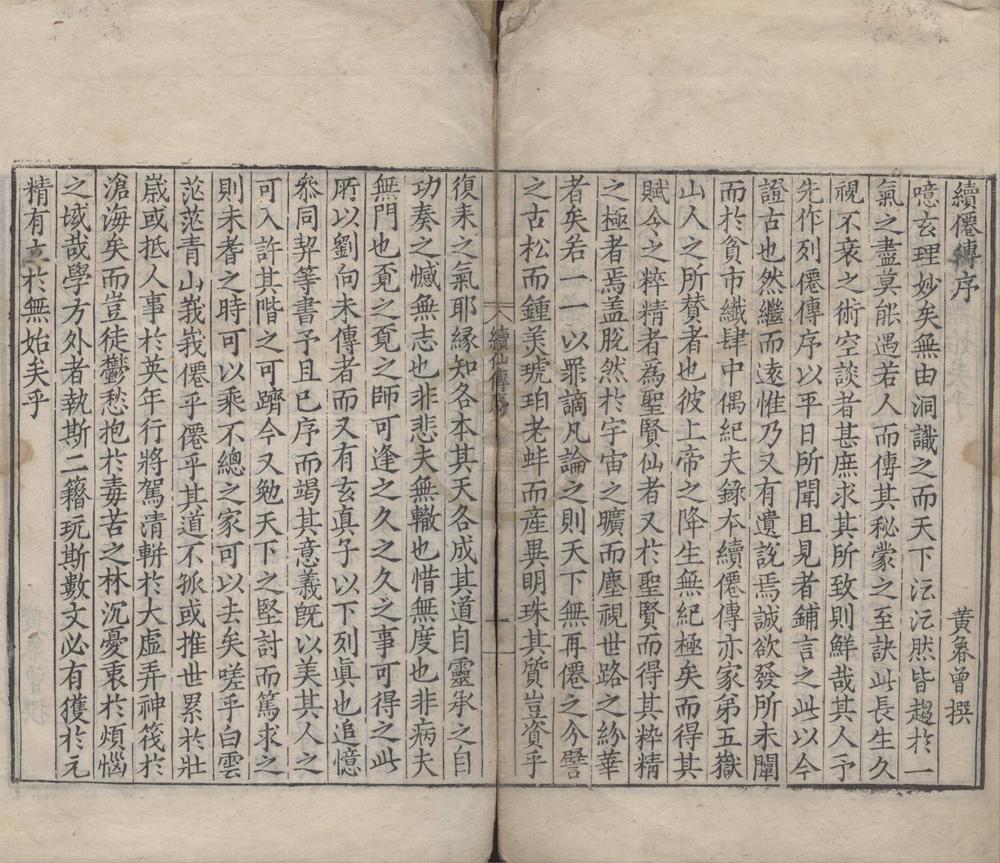 續僊傳序
黃魯曾撰
噫玄理妙矣無由洞識之而天下沄沄然皆趨於一
氣之盡莫能遇若人而傳其秘蒙之至訣此長生久
視不衰之術空談者甚庶求其所致則鮮哉其人予
先作列僊傳序以平日所聞且見者鋪言之此以今
證古也然繼而遠惟乃又有遺説焉誠欲發所未闡
而於貧市纎肆中偶紀夫錄本續僊傳亦家弟五嶽
山人之所賛者也彼上帝之降生無紀極矣而得其
賦令之粹精者為聖賢仙者又於聖賢而得其粹精
之極者焉盖脫然於宇宙之曠而塵視世路之紛華
者矣若一一以罪謫凡論之則天下無再僊之分譬
之古松而鍾羙琥珀老蚌而産異明珠其質豈資乎
續仙傳序
一
復来之氣耶縁知各本其天各成其道自靈承之自
功奏之憾無志也非悲夫無轍也惜無度也非病夫
無門也覔之覔之師可逢之久之久之事可得之此
所以劉向未傳者而又有玄真子以下列真也追憶
叅同契等書予且已序而竭其意義既以美其人之
可入許其階之可躋今又勉天下之堅討而篤求之
則未耆之時可以乘不總之家可以去矣嗟乎白雲
茫茫青山峩峩僊乎僊乎其道不孤或推世累於壯
嵗或抵人事於英年行將駕清軿於大虛弄神筏於
滄海矣而豈徒鬱愁抱於毒苦之林沉憂衷於煩惱
之域哉學方外者執斯二籍玩斯數文必有獲於元
精有立於無始矣乎